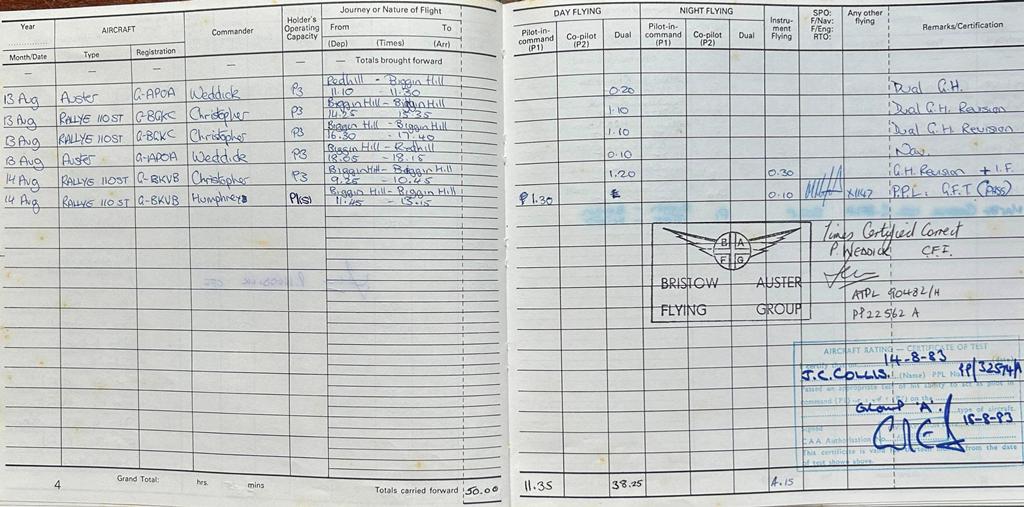 Year AIRCRAFT Commander Holder's Operating Capacity Journey or Nature of Flight
Month/Date Type Registration From To
(Dep) (Times) (Arr)
— — — — — Totals brought forward
13 Aug Auster G-APOA Weddick P3 Redhill - Biggin Hill
11.10 - 11.30
13 Aug RALLYE 110ST G-BGKC Christopher P3 Biggin Hill - Biggin Hill
14.25 - 15.35
13 Aug RALLYE 110ST G-BGKC Christopher P3 Biggin Hill - Biggin Hill
16.30 - 17.40
13 Aug Auster G-APOA Weddick P3 Biggin Hill - Redhill
18.05 - 18.15
14 Aug RALLYE 110ST G-BKVB Christopher P3 Biggin Hill - Biggin Hill
9.25 - 10.45
14 Aug RALLYE 110ST G-BKVB Humphreys P1(S) Biggin Hill - Biggin Hill
11.45 - 13.15
4 Grand Total: hrs. mins Totals carried forward 50.00
DAY FLYING NIGHT FLYING Instru-ment Flying SPO: F/Nav: F/Eng: RTO: Any other flying Remarks/Certification
Pilot-in-command (P1) Co-pilot (P2) Dual Pilot-in-command (P1) Co-pilot (P2) Dual
0.20 Dual G.H.
1.10 Dual G.H. Revision
1.10 Dual G.H. Revision
0.10 Nav.
1.20 0.30 G.H. Revision + I.F.
1.30 0.10 X1147 P.P.L. G.F.T (PASS)
Times Certified Correct
P. WEDDICK C.F.I.
B A
F G
BRISTOW AUSTER
FLYING GROUP
ATPL 90482/H
PP22562 A
AIRCRAFT RATING — CERTIFICATE OF TEST
14-8-83
J.C. COLLIS. (Name) PPL No. PP/32574/A
passed an appropriate test of his ability to act as pilot in
command on the
Group 'A'. type of aircraft.
15-8-83
Signed
C.A.A. Authorisation No.
This certificate is valid from the date
of test shown above.
11.35 38.25 4.15